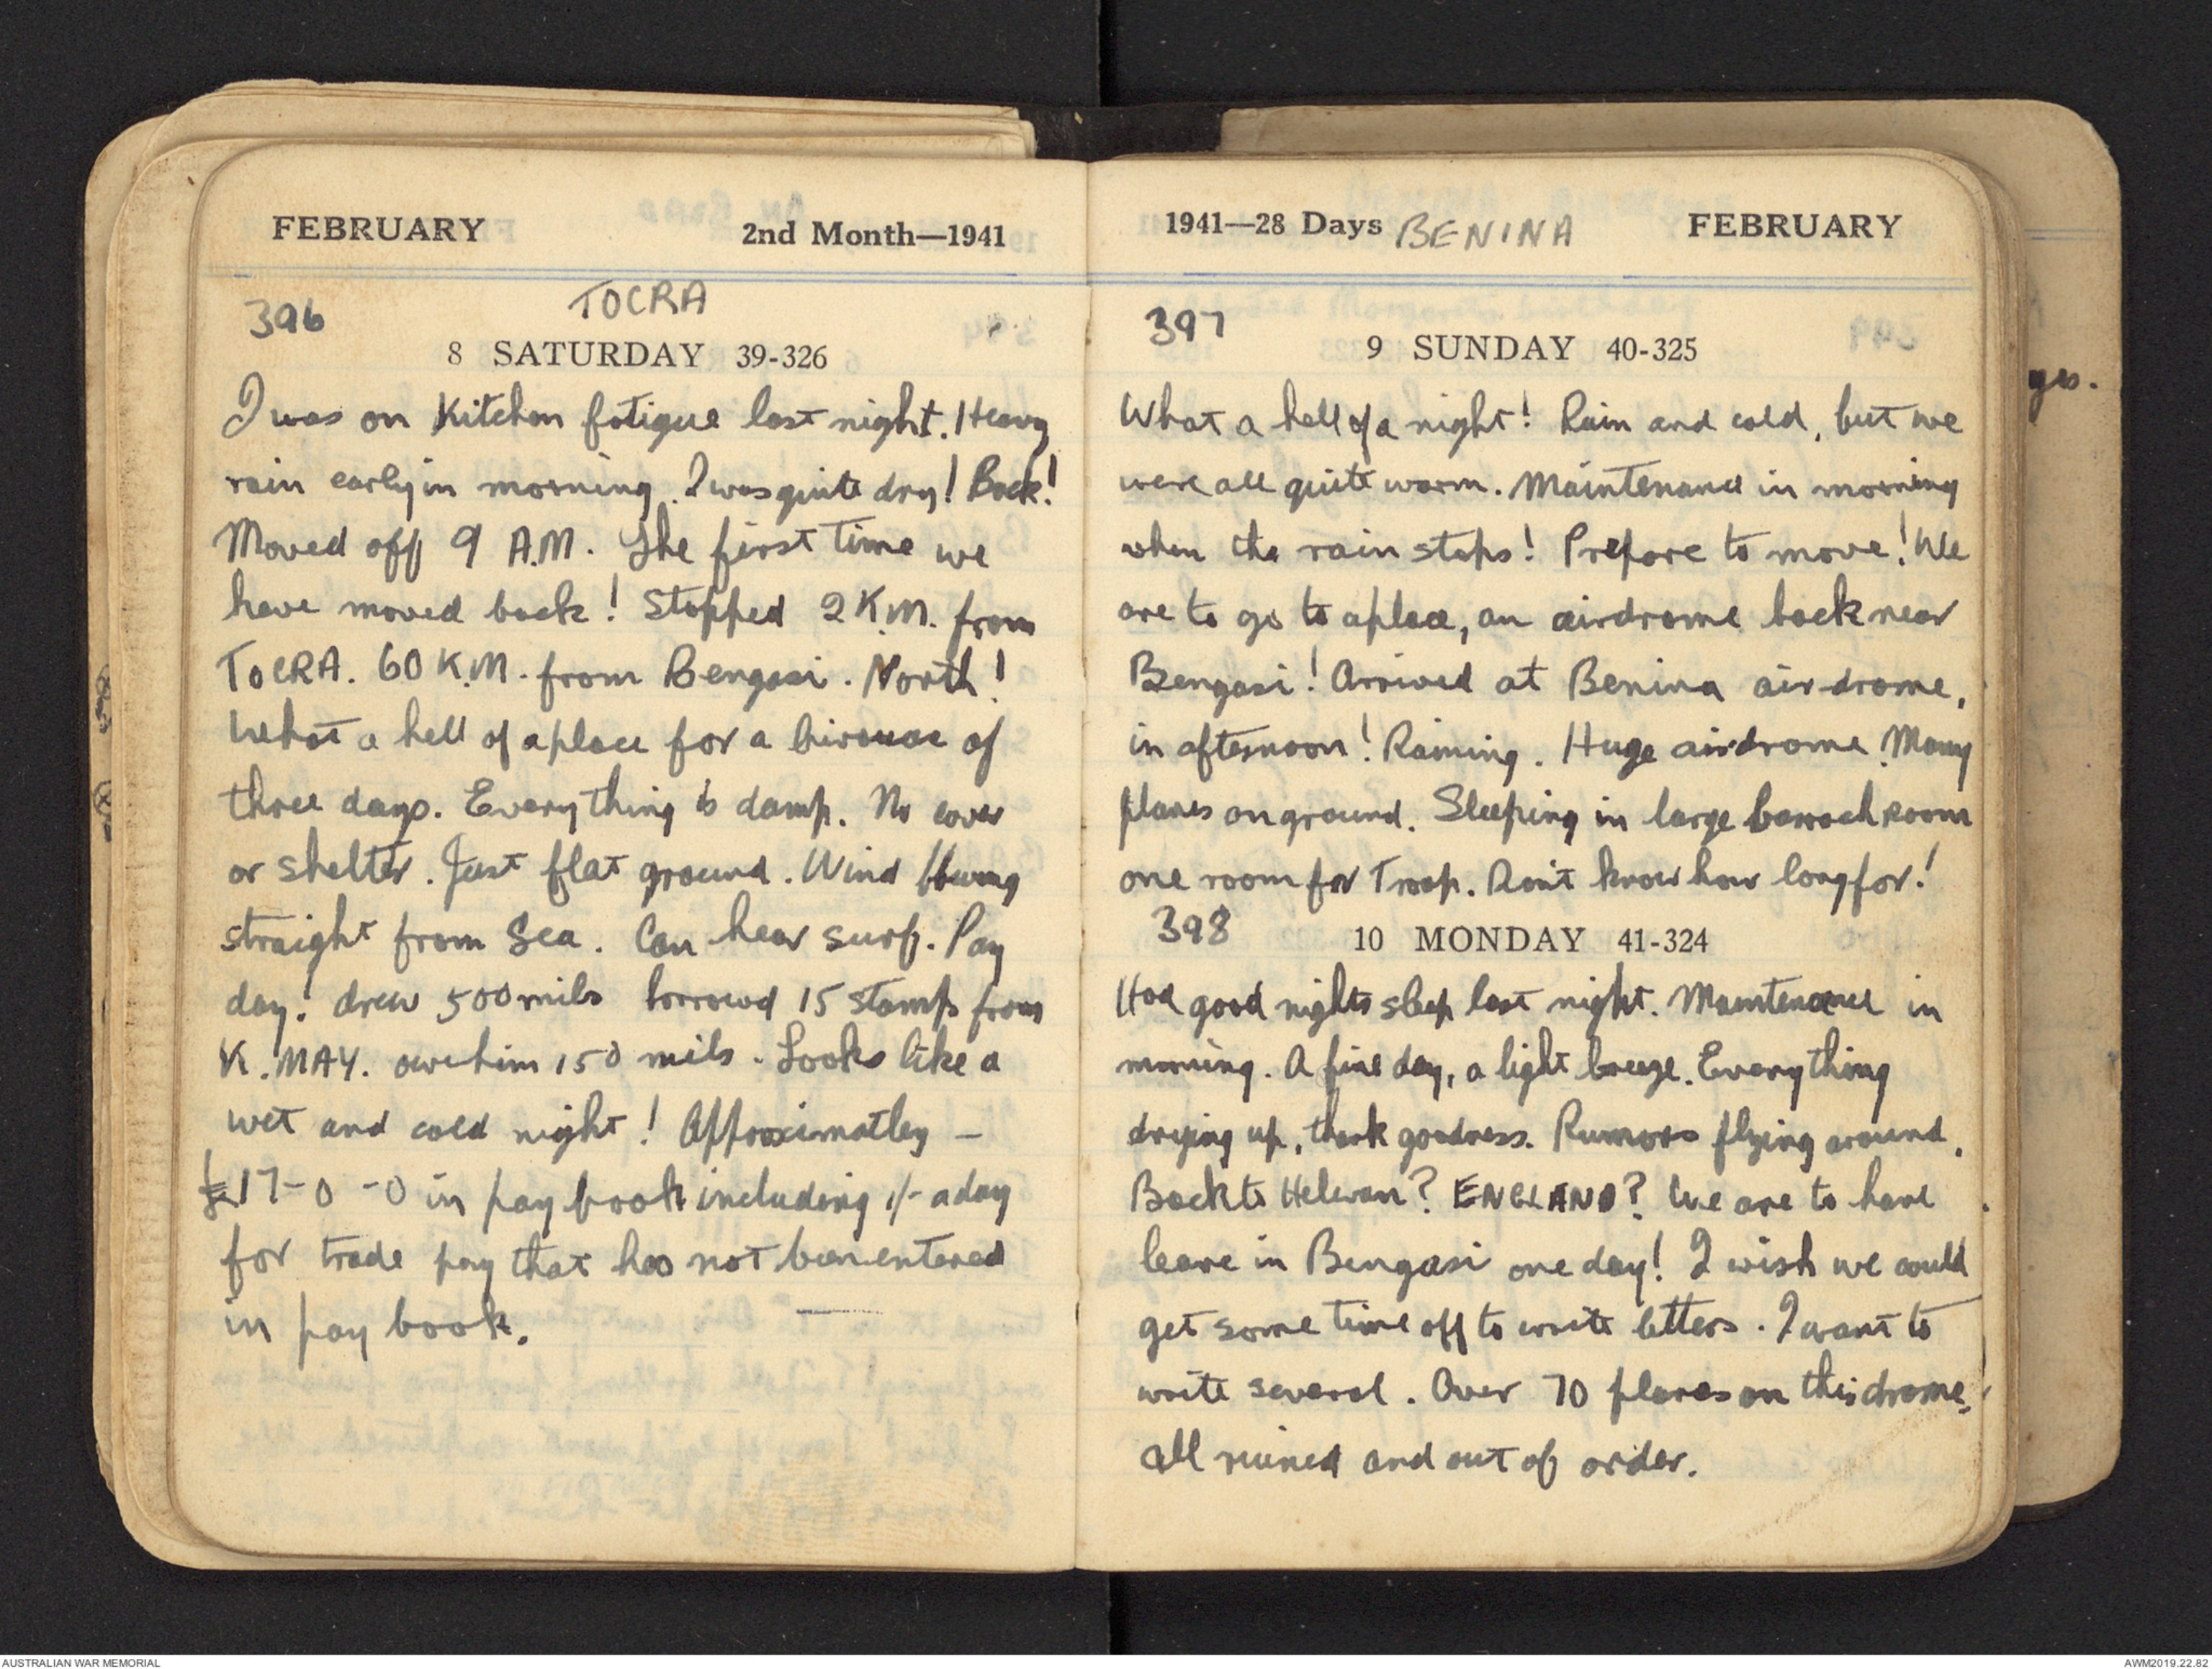 FEBRUARY 2nd Month—1941
396 TOCRA
8 SATURDAY 39-326
I was on Kitchen fatigue last night. Heavy
rain early in morning. I was quite dry! Back!
Moved off 9 A.M. The first time we
have moved back! Stopped 2 K.M. from
TOCRA. 60 K.M. from Bengasi. North!
What a hell of a place for a bivouac of
three days. Everything is damp. No cover
or shelter. Just flat ground. Wind blowing
straight from Sea. Can hear surf. Pay
day! drew 500 mils borrowd 15 stamps from
K. MAY. owe him 150 mils. Looks like a
wet and cold night! Approximatley -
£17-0-0 in pay book including 1/- a day
for trade pay that has not been entered
in pay book.
1941—28 Days BENINA FEBRUARY
397
9 SUNDAY 40-325
What a hell of a night! Rain and cold, but we
were all quite warm. Maintenance in morning
when the rain stops! Prepare to move! We
are to go to a place, an airdrome back near
Bengasi! Arrived at Benina airdrome,
in afternoon! Raining. Huge airdrome. Many
planes on ground. Sleeping in large barrack room
one room for Troop. Don't know how long for!
398
10 MONDAY 41-324
Had good nights sleep last night. Maintenance in
morning. A fine day, a light breeze. Everything
drying up, thank goodness. Rumors flying around.
Back to Helwan? ENGLAND? We are to have
leave in Bengasi one day! I wish we could
get some time off to write letters. I want to
write several. Over 70 planes on this drome,
all ruined and out of order.
yes.
AUSTRALIAN WAR MEMORIAL
AWM2019.22.82